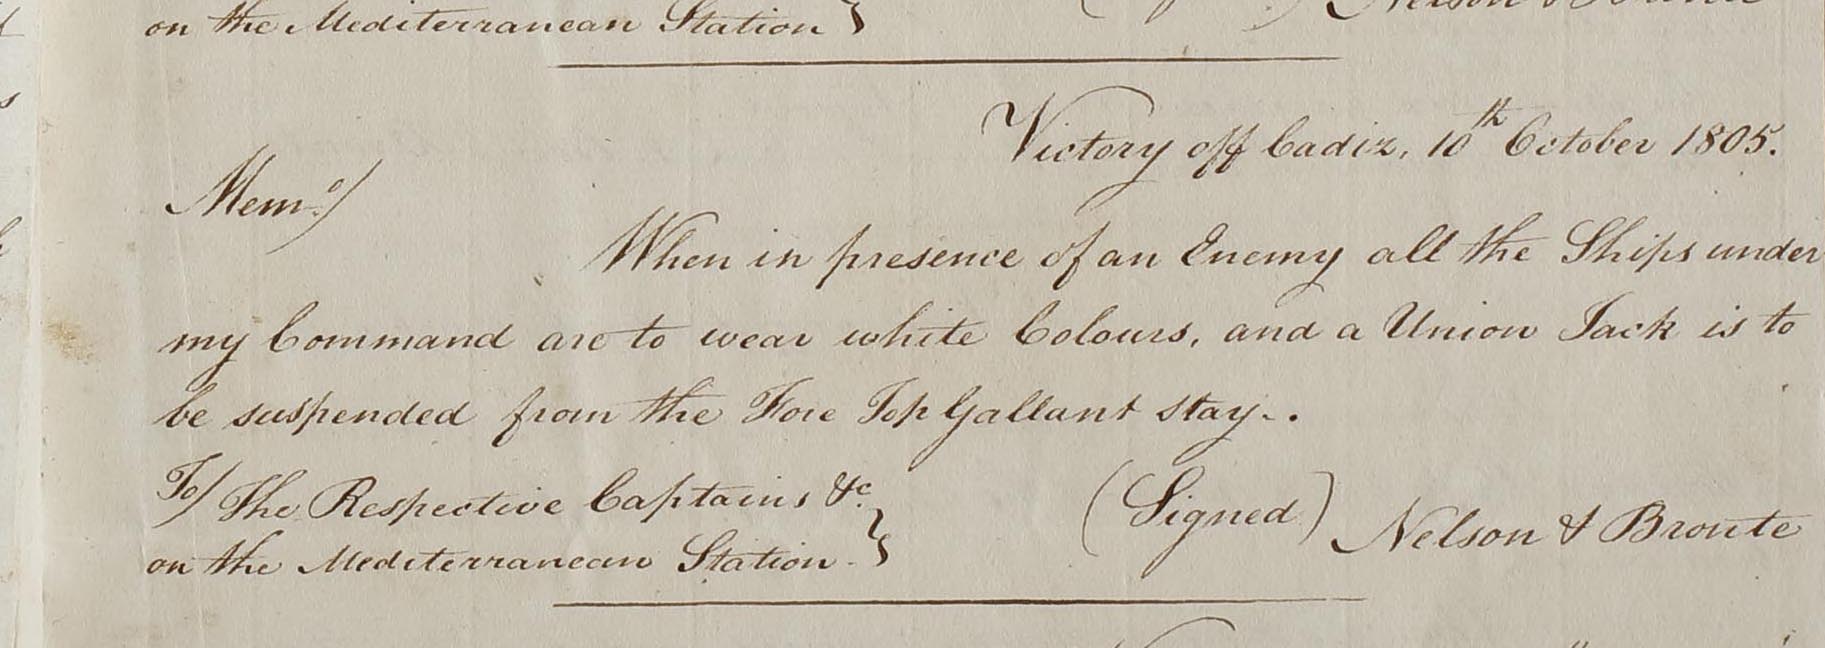 on the Mediterranean Station }
Victory off Cadiz, 10th October 1805.
Memo/
When in presence of an Enemy all the Ships under
my Command are to wear white Colours, and a Union Jack is to
be suspended from the Fore Top Gallant stay.
To/ The Respective Captains &c.
on the Mediterranean Station }
(Signed) Nelson & Bronte